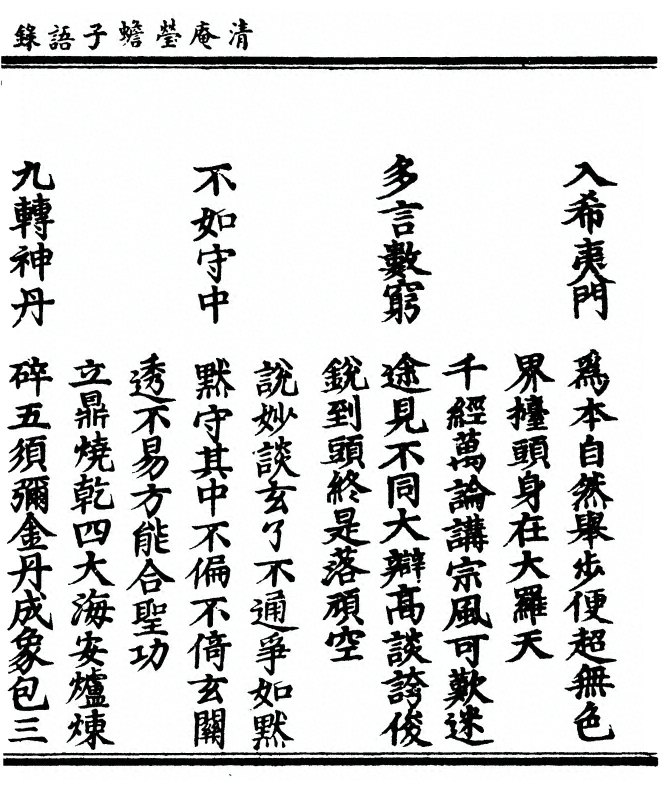 清庵瑩蟾子語錄
入希夷門
爲本自然舉步便超無色
界擡頭身在大羅天
千經萬論講宗風可歎迷
多言數窮
途見不同大辯高談誇俊
銳到頭終是落頑空
說妙談玄了不通爭如黙
不如守中
黙守其中不偏不倚玄關
透不易方能合聖功
立鼎燒乾四大海安爐煉
九轉神丹
碎五須彌金丹成象包三